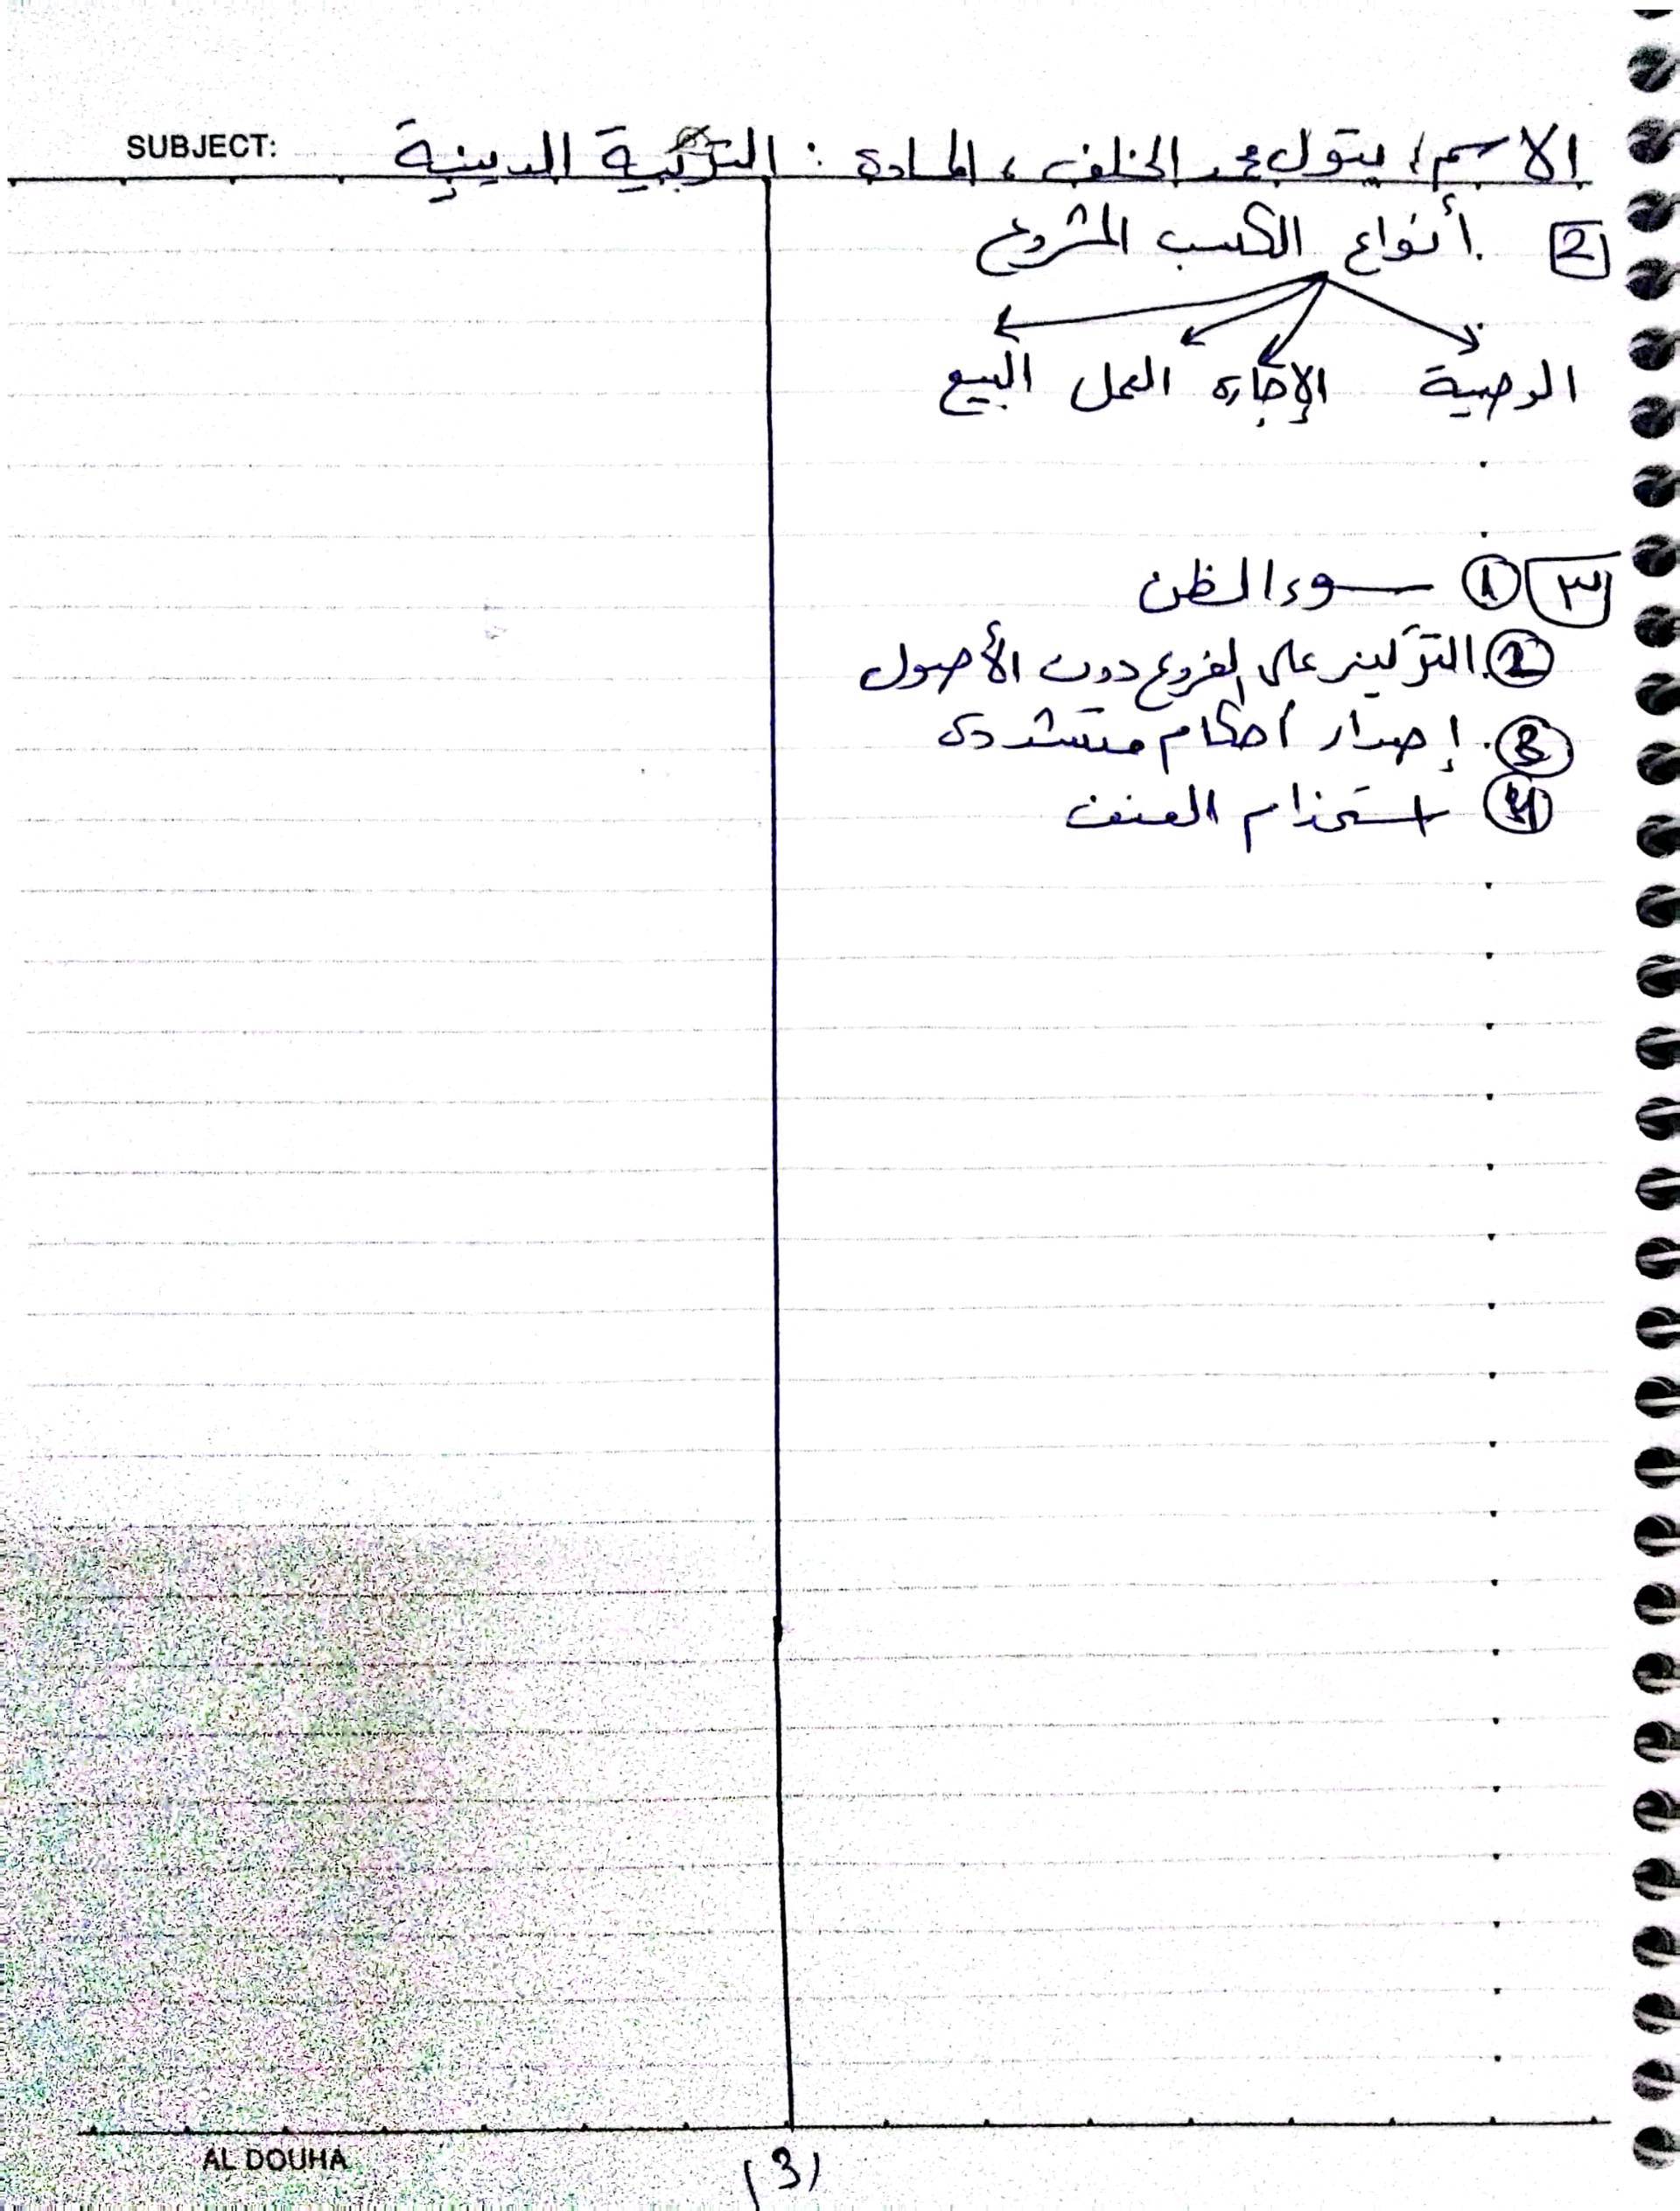 SUBJECT: الاسم / بتول محمد الخلف ، المادة : التربية الدينية
2 أنواع الكسب المشروع
الوصية الإجاره العمل البيع
٣ 1 سوء الظن
2 التركيز على الفروع دون الأصول
3 إصدار أحكام متشدده
4 استخدام العنف
(3)
AL DOUHA